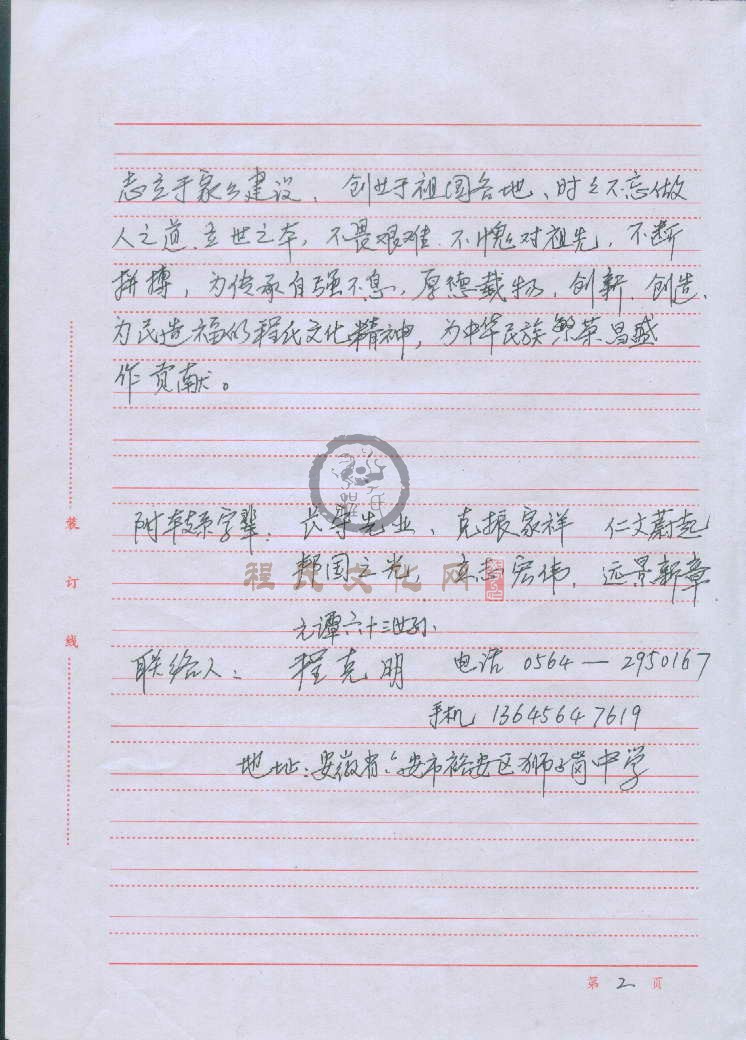 志立于家乡建设、创业于祖国各地、时々不忘做
人之道、立世之本，不畏艰难、不愧对祖先，不断
拼搏，为传承自强不息、厚德载物、创新、创造、
为民造福的程氏文化精神，为中华民族繁荣昌盛
作贡献。
附字辈：世守先业、克振家祥 仁文蔚起
邦国之光，立志宏伟，远景新章
程氏文化网
元谭六十三世孙
联络人：程克明 电话 0564—2950167
手机 13645647619
地址：安徽省六安市裕安区狮子岗中学
装
订
线
第 2 页